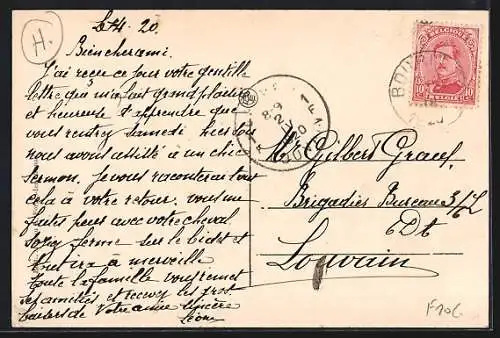 H.
Le 4. 20.
Bien cher ami.
J'ai reçu ce jour votre gentille
lettre qui m'a fait grand plaisir
et heureuse d'apprendre que
vous rentrez Samedi. hier soir
nous avons assisté à un chic
Sermon. Je vous raconterai tout
cela à votre retour. vous me
faites peur avec votre cheval
Soyez ferme sur le bidet et
tout ira a merveille
toute la famille vous remet
ses amitiés et recevez les
baisers de Votre amie Sincère
BELGIQUE
10 10
BELGIE
8-9
1920
Mr Gilbert Graef
Brigadier Bureau 3/6
Dt
Louvain
1
F106